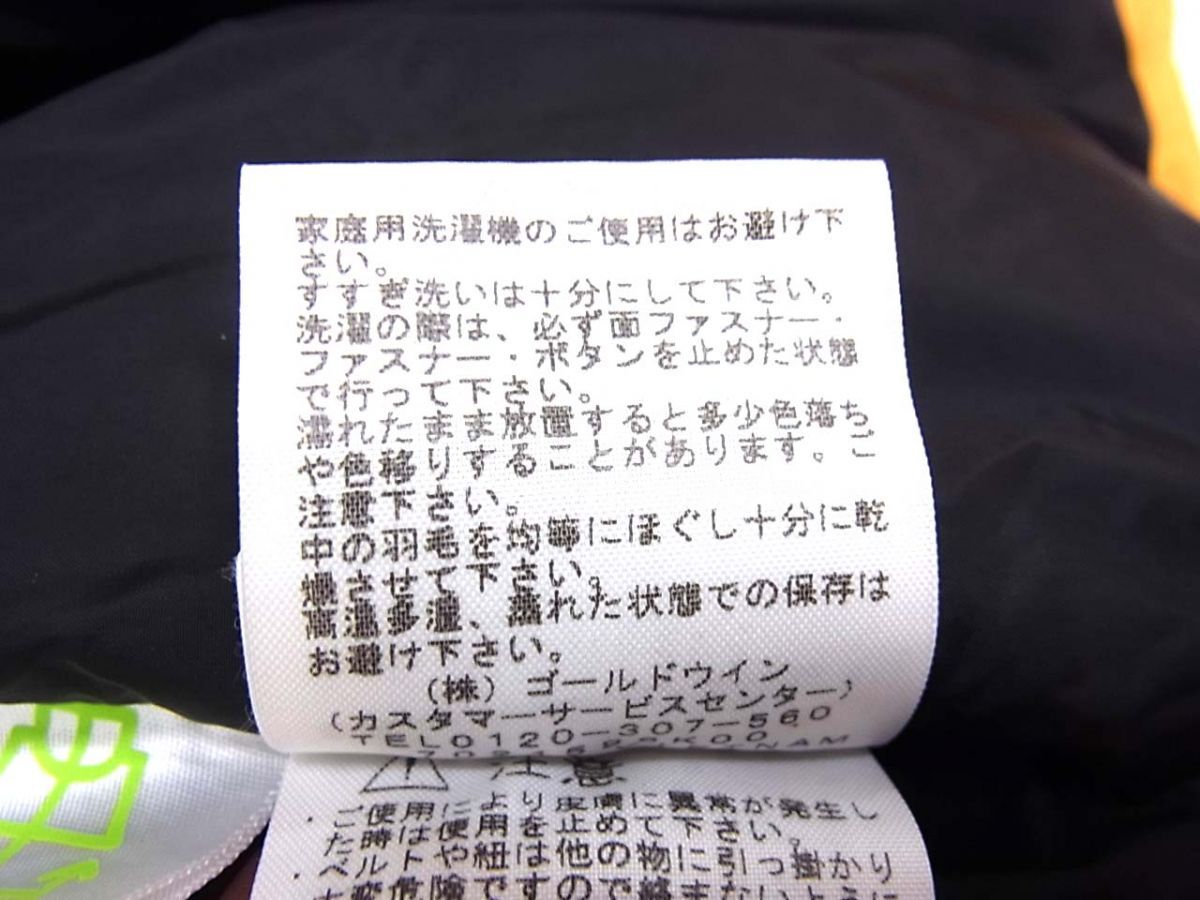 家庭用洗濯機のご使用はお避け下
さい。
すすぎ洗いは十分にして下さい。
洗濯の際は、必ず面ファスナー・
ファスナー・ボタンを止めた状態
で行って下さい。
濡れたまま放置すると多少色落ち
や色移りすることがあります。ご
注意下さい。
中の羽毛を均等にほぐし十分に乾
燥させて下さい。
高温多湿、濡れた状態での保存は
お避け下さい。
(株)ゴールドウイン
(カスタマーサービスセンター)
TEL0120-307-560
注意
・ご使用により皮膚に異常が発生し
た時は使用を止めて下さい。
・ベルトや紐は他の物に引っ掛かり
大変危険ですので絡まないように